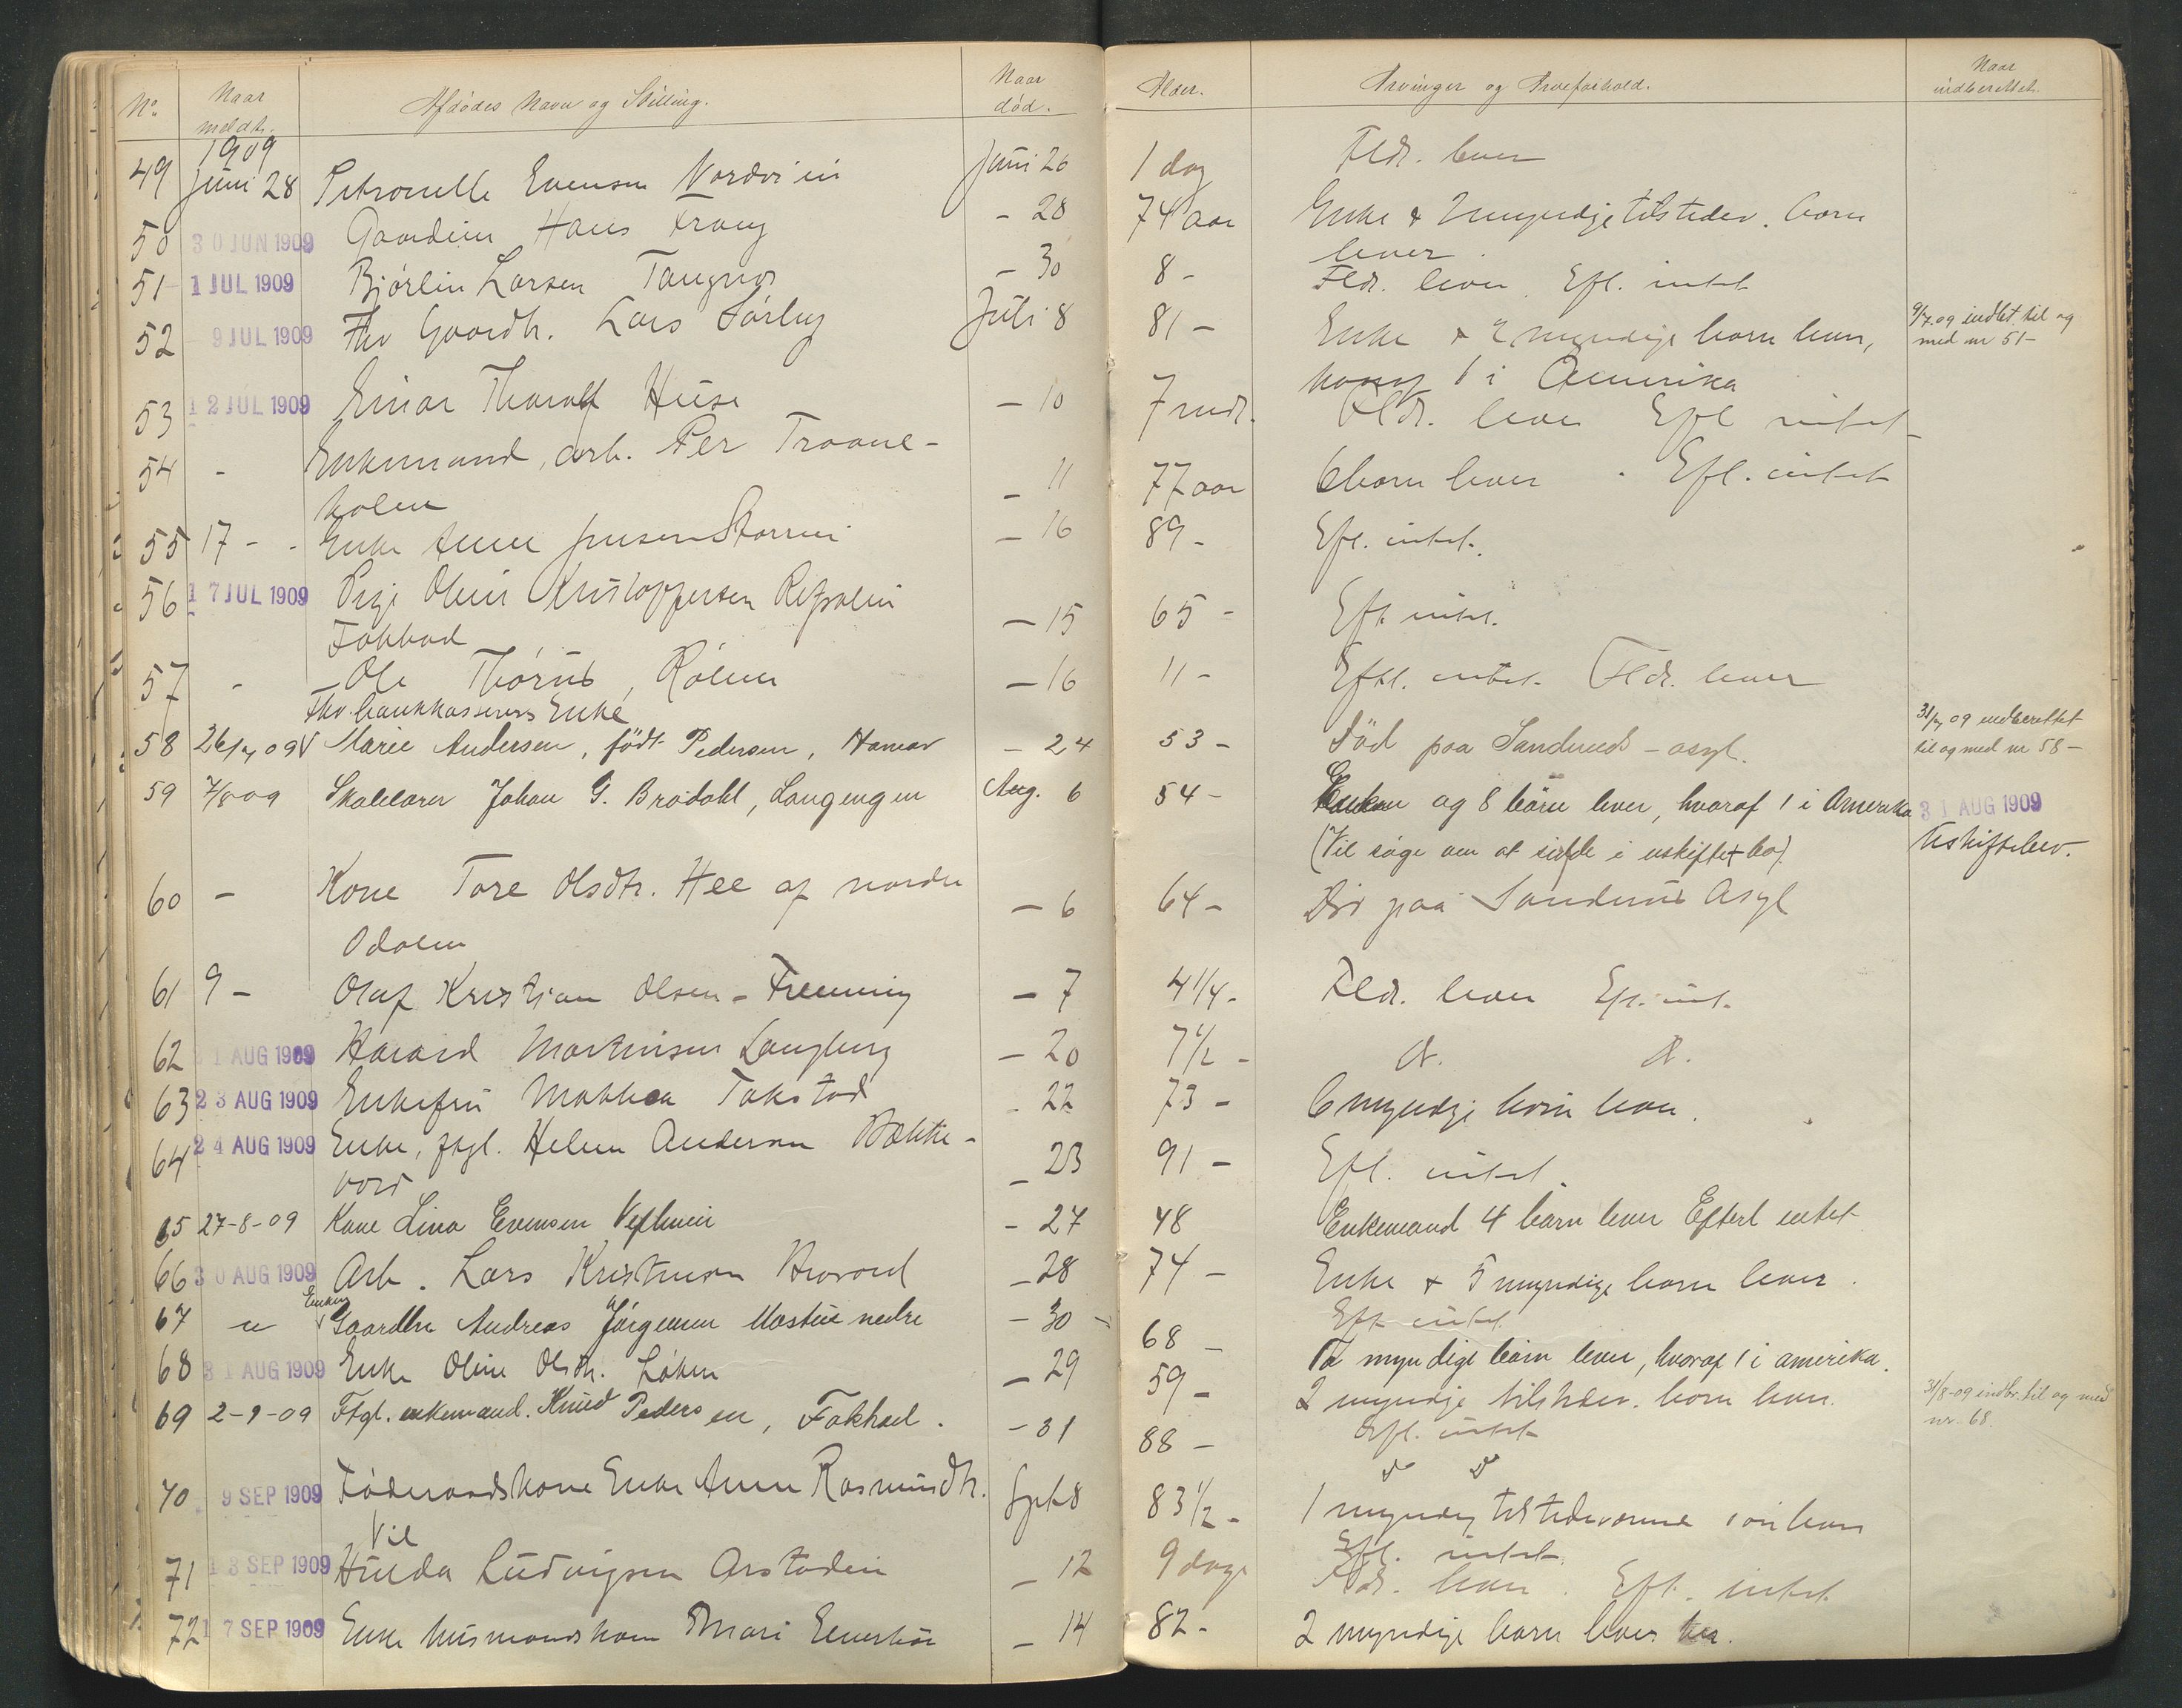 No. Naar meldt. Afdødes Navn og Stilling. Naar død. Alder. Arvinger og Arveforhold. Naar indberettet.
1909
49 Juni 28 Petronelle Evensen Juni 26 1 dag Fldr. lever
50 30 JUN 1909 Hans Frang - 28 74 aar Enke & myndige tilstedev. børn
lever.
51 1 JUL 1909 Larsen - 30 8 - Fldr. lever. Efl. intet
52 9 JUL 1909 Fhv Gaardbr. Lars Sørby Juli 8 81 - Enke & myndige børn lever, 9/7 09 indbt. til og
hvoraf 1 i Amerika med nr 51 -
53 12 JUL 1909 Einar Huse - 10 7 mdr. Fldr. lever Efl intet
54 - Enkemand, arb. Per Traane-
holen - 11 77 aar 6 børn lever. Efl. intet
55 17 - - Enke Anne Jensen - 16 89 - Efl. intet.
56 17 JUL 1909 Pige Oline Kristoffersen
Fokhad - 15 65 - Efl. intet.
57 - Ole - 16 11 - Eftl. intet. Fldr. lever
Fhv. bankkasserers Enke
58 26/7 09 Marie Andersen, født Pedersen, Hamar - 24 53 - Död paa Sanderuds - asyl. 31/7 09 indberettet
til og med nr 58 -
59 7/8 09 Skolelærer Johan G. Brodahl, Langengen Aug. 6 54 - Enken og 8 börn lever, hvoraf 1 i Amerika 31 AUG 1909
(Vil söge om at sidde i uskiftet bo) Uskiftebev.
60 - Kone Tore Olsdtr. Hee af nordre
Odalen - 6 64 - Död paa Sanderud Asyl
61 9 - Olaf Kristian Olsen - - 7 4 1/4 - Fldr. lever Efl. int.
62 21 AUG 1909 Martinsen Langberg - 20 7 1/2 - d. d.
63 23 AUG 1909 Enkefru Mathea Takstad - 22 73 - 6 myndige børn lever.
64 24 AUG 1909 Enke, fhgl. Helene Andersen Bække-
vord - 23 91 - Efl. intet.
65 27-8-09 Kone Lina Evensen - 27 48 Enkemand 4 børn lever Efterl intet
66 30 AUG 1909 Arb. Lars Kristiansen - 28 74 - Enke & 5 myndige børn lever.
Efl. intet
Enkem
67 " Gaardbr Andreas Jörgensen nedre - 30 - 68 - To myndige börn lever, hvoraf 1 i amerika.
68 31 AUG 1909 Enke Oline Olsdtr. Løken - 29 59 - 2 myndige tilstedev. børn lever.
Efl. intet 31/8-09 indbr. til og med
nr. 68.
69 2-9-09 Ftgl. enkemand. Knud Pedersen, Fokhad. - 31 88 - d d
70 9 SEP 1909 Føderaadskone Enke Anne Rasmusdtr.
Vil Sept 8 83 1/2 - 1 myndig tilstedeværende søn lever
Efl. intet.
71 13 SEP 1909 Hulda Ludvigsen Arstadeie - 12 9 dage Fldr. lever. Efl. intet.
72 17 SEP 1909 Enke husmandskone Mari - 14 82 - 2 myndige børn lever her.